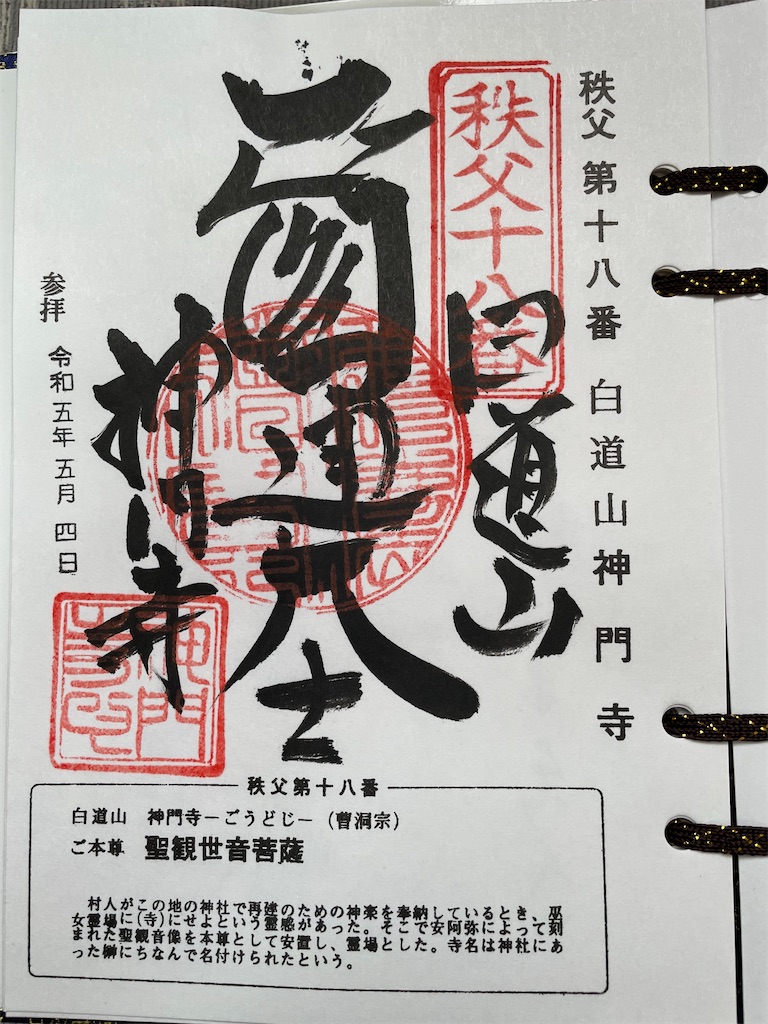 秩父 第十八番 白道山 神門寺
秩父十八番
白道山
神門寺
参拝 令和五年 五月 四日
神門寺印
秩父第十八番
白道山 神門寺－ごうどじ－(曹洞宗)
ご本尊 聖観世音菩薩
村人がこの地の神社で再建のための神楽を奉納しているとき、巫
女霊場に(寺)にせよという霊感があった。そこで安阿弥によって刻
まれた聖観音像を本尊として安置し、霊場とした。寺名は神社にあ
った榊にちなんで名付けられたという。